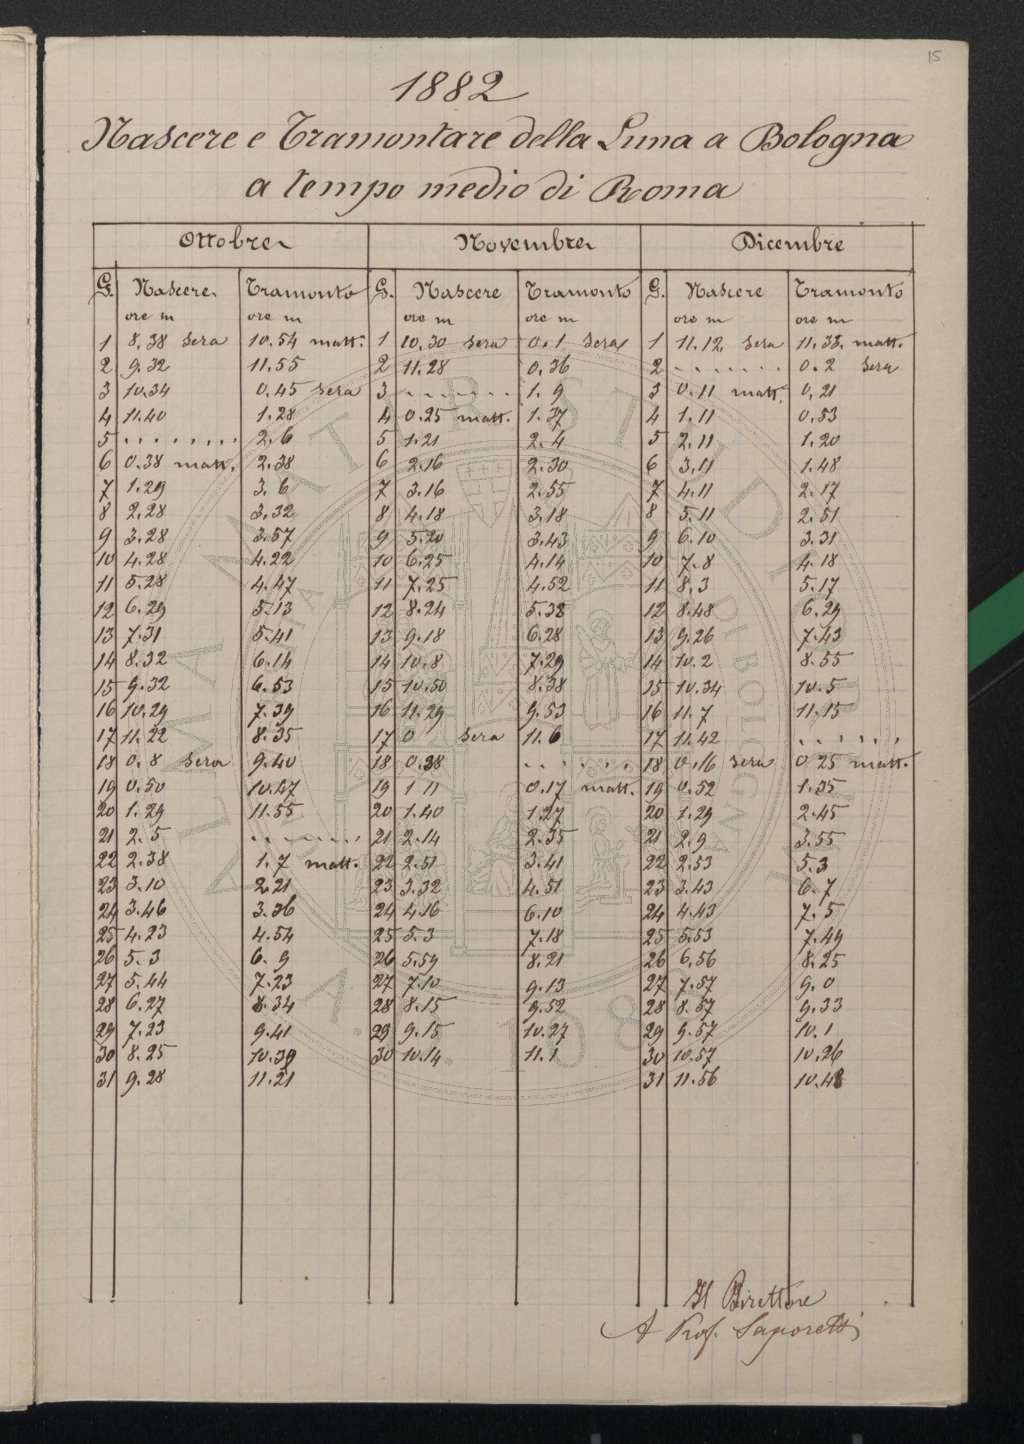 15
1882
Nascere e Tramontare della Luna a Bologna
a tempo medio di Roma
Ottobre Novembre Dicembre
G. Nascere Tramonto G. Nascere Tramonto G. Nascere Tramonto
ore m ore m ore m ore m ore m ore m
1 8.38 sera 10.54 matt. 1 10.30 sera 0.1 sera 1 11.12 sera 11.33 matt.
2 9.32 11.55 2 11.28 0.36 2 ....... 0.2 sera
3 10.34 0.45 sera 3 ....... 1.9 3 0.11 matt. 0.21
4 11.40 1.28 4 0.25 matt. 1.37 4 1.11 0.53
5 ........ 2.6 5 1.21 2.4 5 2.11 1.20
6 0.38 matt. 2.38 6 2.16 2.30 6 3.11 1.48
7 1.29 3.6 7 3.16 2.55 7 4.11 2.17
8 2.28 3.32 8 4.18 3.18 8 5.11 2.51
9 3.28 3.57 9 5.20 3.43 9 6.10 3.31
10 4.28 4.22 10 6.25 4.14 10 7.8 4.18
11 5.28 4.47 11 7.25 4.52 11 8.3 5.17
12 6.29 5.13 12 8.24 5.38 12 8.48 6.29
13 7.31 5.41 13 9.18 6.28 13 9.26 7.43
14 8.32 6.14 14 10.8 7.29 14 10.2 8.55
15 9.32 6.53 15 10.50 8.38 15 10.34 10.5
16 10.29 7.39 16 11.29 9.53 16 11.7 11.15
17 11.22 8.35 17 0 sera 11.6 17 11.42 ......
18 0.8 sera 9.40 18 0.38 ...... 18 0.16 sera 0.25 matt.
19 0.50 10.47 19 1 11 0.17 matt. 19 0.52 1.35
20 1.29 11.55 20 1.40 1.27 20 1.29 2.45
21 2.5 ....... 21 2.14 2.35 21 2.9 3.55
22 2.38 1.7 matt. 22 2.51 3.41 22 2.53 5.3
23 3.10 2.21 23 3.32 4.51 23 3.43 6.7
24 3.46 3.36 24 4.16 6.10 24 4.43 7.5
25 4.23 4.54 25 5.3 7.18 25 5.53 7.49
26 5.3 6.9 26 5.59 8.21 26 6.56 8.25
27 5.44 7.23 27 7.10 9.13 27 7.57 9.0
28 6.27 8.34 28 8.15 9.52 28 8.57 9.33
29 7.23 9.41 29 9.15 10.27 29 9.57 10.1
30 8.25 10.39 30 10.14 11.1 30 10.57 10.26
31 9.28 11.21 31 11.56 10.48
Il Direttore
A Prof. Saporetti